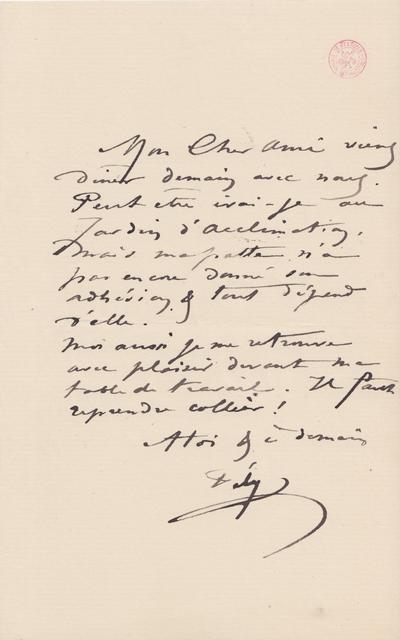 Mon Cher Ami viens
diner demain avec nous.
Peut etre irai-je au
Jardin d'acclimation.
mais ma patte n'a
pas encore donné son
adhésion & tout dépend
d'elle.
Moi aussi je me retrouve
avec plaisir devant ma
table de travail. Il faut
reprendre collier!
A toi & à demain